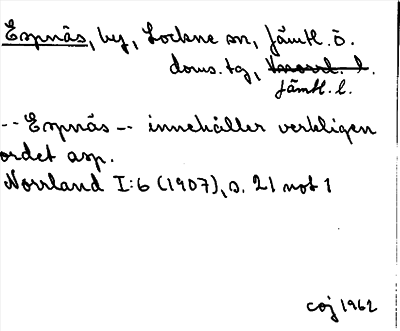 Espnäs, by, Lockne sn, Jämtl. ö.
doms. tg, Vnorrl. l.
Jämtl. l.
-- Espnäs -- innehåller verkligen
ordet asp.
Norrland I:6 (1907), s. 21 not 1
coj 1962